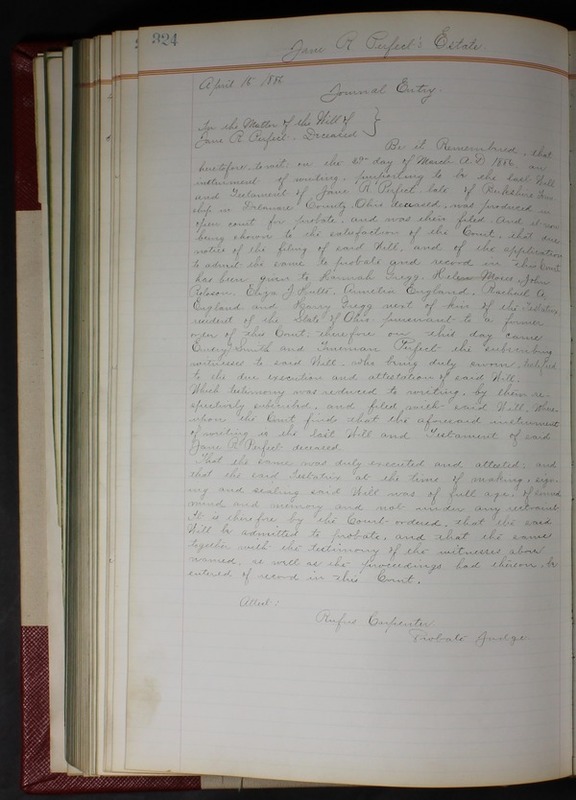 324
Jane R Perfect's Estate
April 15 1886
Journal Entry.
In the Matter of the Will of
Jane R Perfect - Deceased
Be it Remembered, that
heretofore to-wit, on the day of March A.D. 1886 an
instrument of writing, purporting to be the last Will
and Testament of Jane R Perfect late of Berkshire Town
ship in Delaware County, Ohio deceased, was produced in
open court for probate, and was then filed. And it now
being shown to the satisfaction of the Court, that due
notice of the filing of said Will, and of the application
to admit the same to probate and record in this Court
has been given to Hannah Gregg, Moses, John
Eliza J. England, Rachael A.
England and Harry Gregg next of kin of the Testatrix
resident of the State of Ohio, pursuant to a former
order of this Court, therefore on this day came
Emery Smith and Truman Perfect the subscribing
witnesses to said Will, who being duly sworn, testified
to the due execution and attestation of said Will.
Which testimony was reduced to writing, by them re-
spectively subscribed, and filed with said Will. Where
upon the Court find that the aforesaid instrument
of writing is the last Will and Testament of said
Jane R Perfect deceased.
That the same was duly executed and attested; and
that the said Testatrix at the time of making, sign-
ing and sealing said Will was of full age, of sound
mind and memory and not under any restraint
It is therefore by the Court ordered, that the said
Will be admitted to probate, and that the same
together with the testimony of the witnesses above
named, as well as the proceedings had thereon, be
entered of record in this Court.
Attest:
Rufus Carpenter
Probate Judge